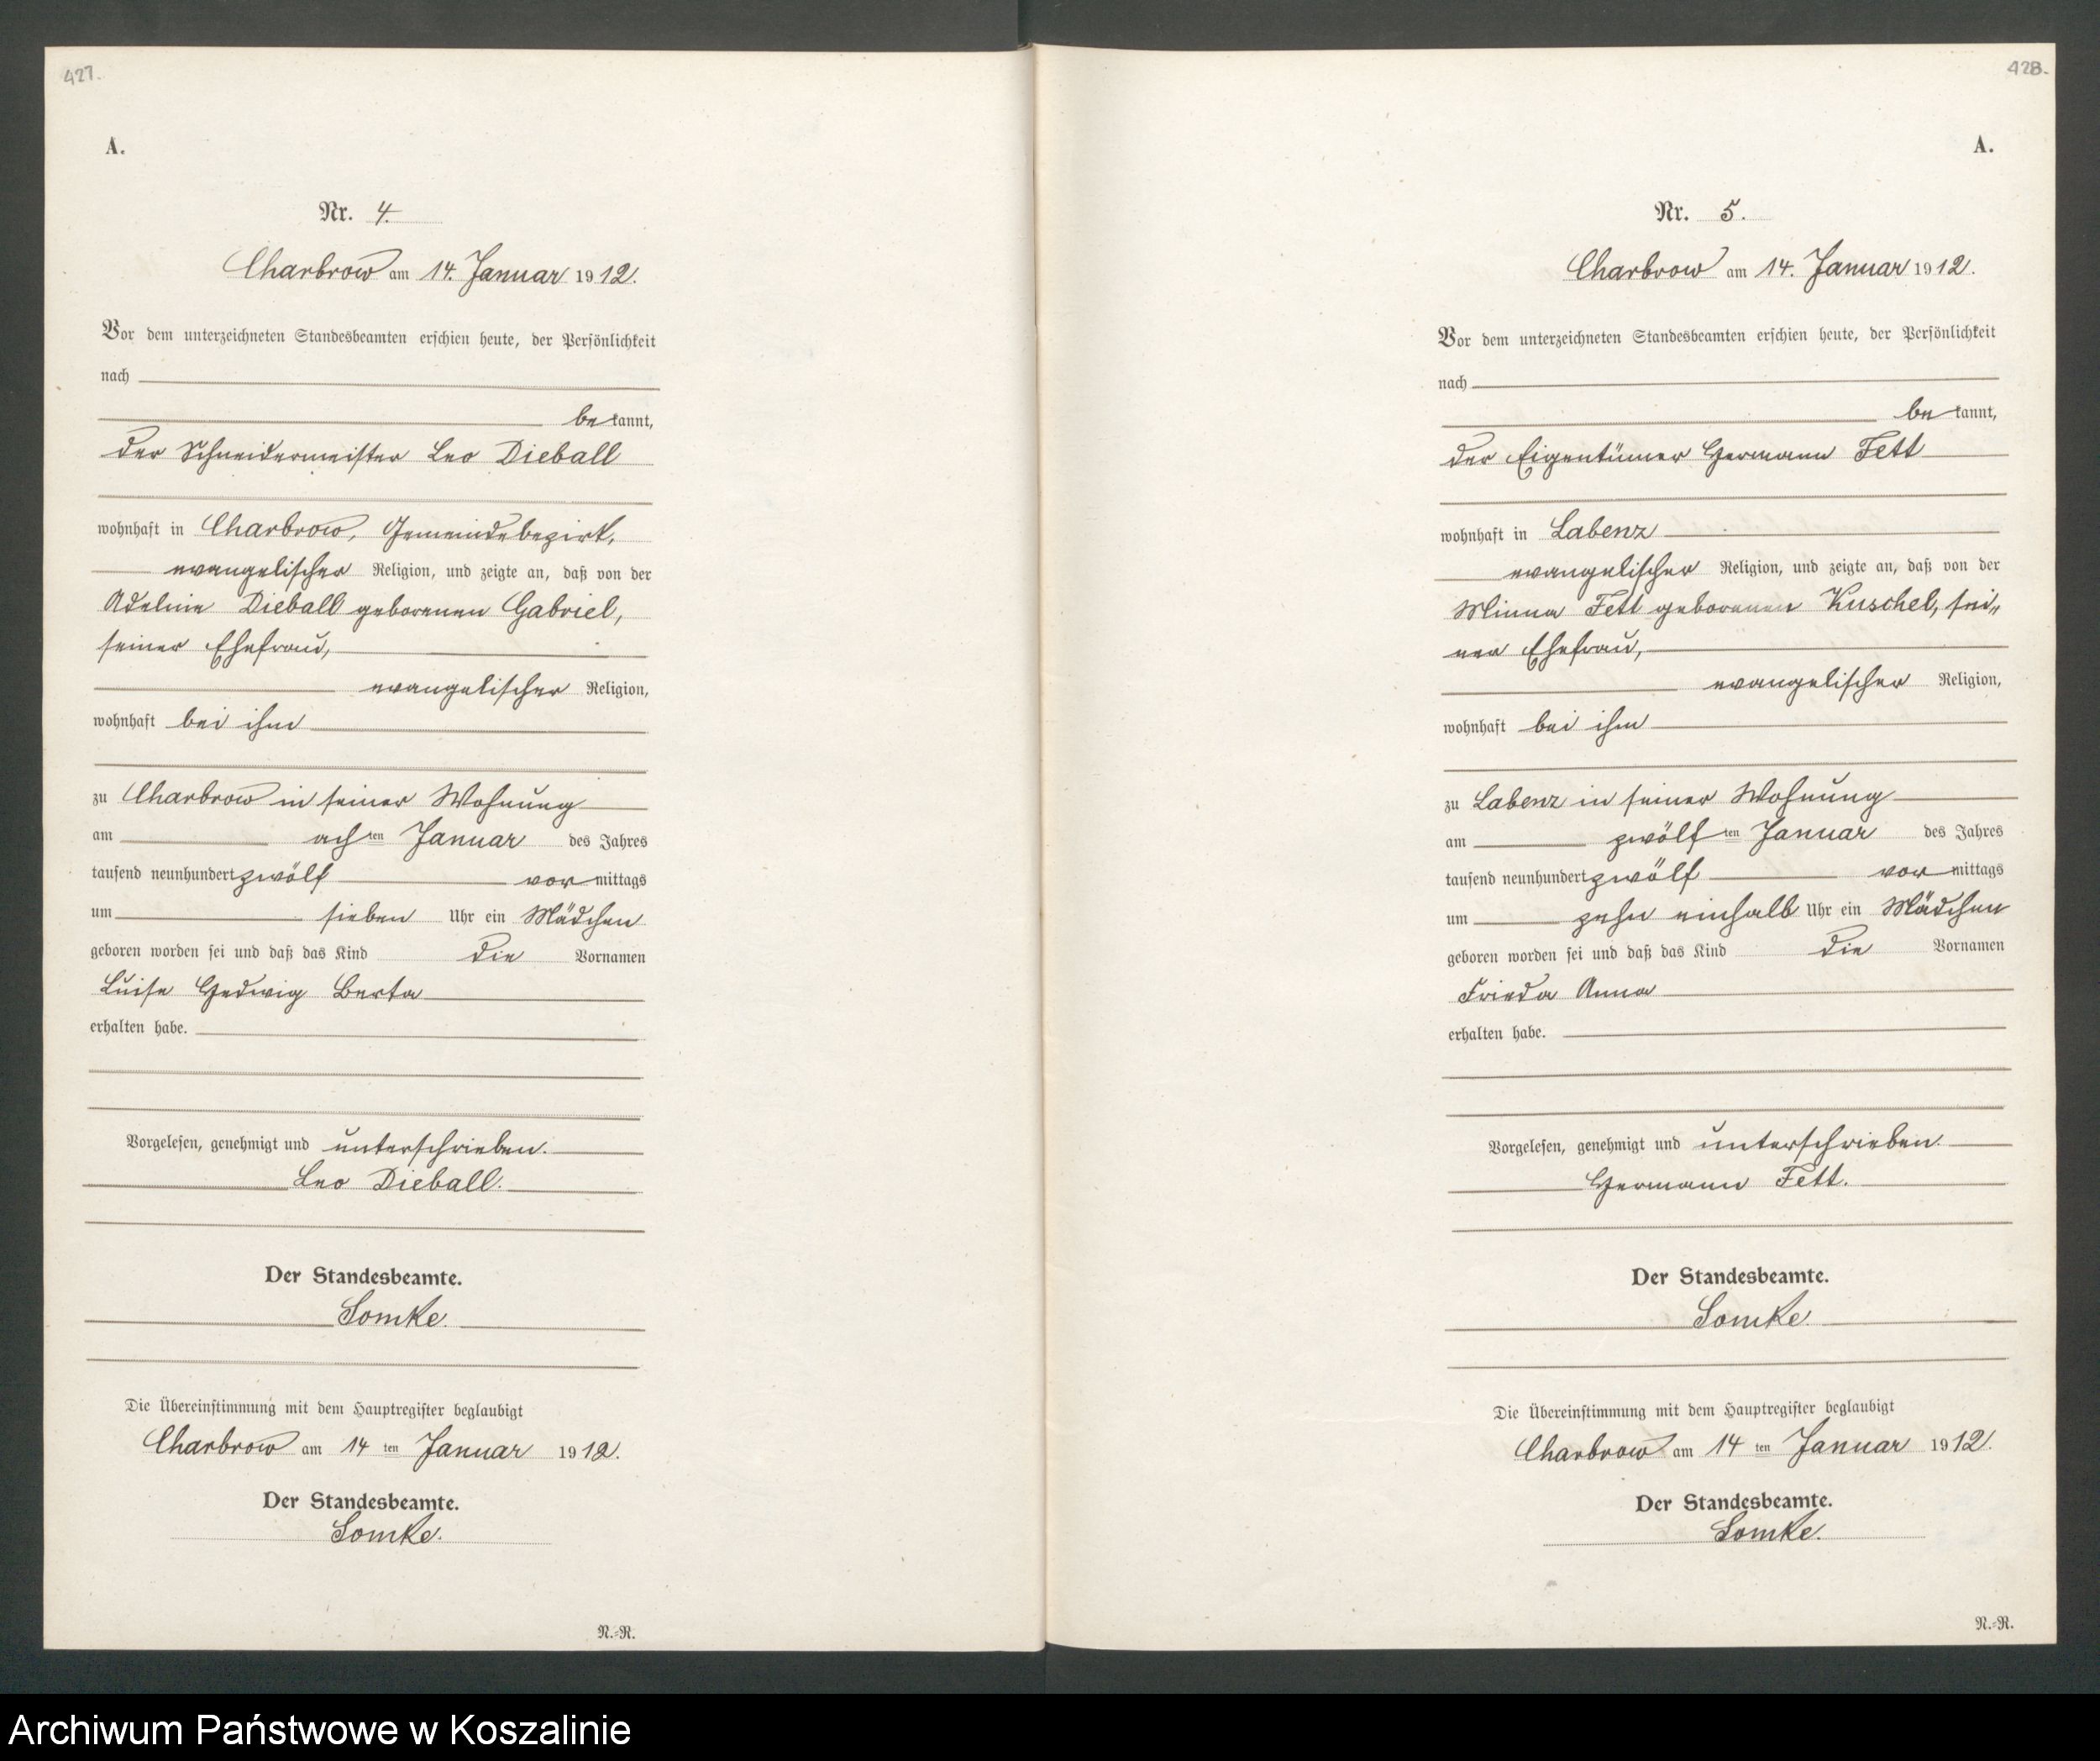 427.
A.
Nr. 4.
Charbrow am 14. Januar 1912.
Vor dem unterzeichneten Standesbeamten erschien heute, der Persönlichkeit
nach
bekannt,
der Schneidermeister Leo Dieball
wohnhaft in Charbrow, Gemeindebezirk,
evangelischer Religion, und zeigte an, daß von der
Adeline Dieball geborenen Gabriel,
seiner Ehefrau,
evangelischer Religion,
wohnhaft bei ihm
zu Charbrow in seiner Wohnung
am achten Januar des Jahres
tausend neunhundert zwölf vormittags
um sieben Uhr ein Mädchen
geboren worden sei und daß das Kind die Vornamen
Luise Hedwig Berta
erhalten habe.
Vorgelesen, genehmigt und unterschrieben.
Leo Dieball.
Der Standesbeamte.
Somke.
Die Übereinstimmung mit dem Hauptregister beglaubigt
Charbrow am 14ten Januar 1912.
Der Standesbeamte.
Somke.
N.-R.
428.
A.
Nr. 5.
Charbrow am 14. Januar 1912.
Vor dem unterzeichneten Standesbeamten erschien heute, der Persönlichkeit
nach
bekannt,
der Eigentümer Hermann Fett
wohnhaft in Labenz
evangelischer Religion, und zeigte an, daß von der
Minna Fett geborenen Kuschel, sei„
ner Ehefrau,
evangelischer Religion,
wohnhaft bei ihm
zu Labenz in seiner Wohnung
am zwölften Januar des Jahres
tausend neunhundert zwölf vormittags
um zehn einhalb Uhr ein Mädchen
geboren worden sei und daß das Kind die Vornamen
Frieda Anna
erhalten habe.
Vorgelesen, genehmigt und unterschrieben.
Hermann Fett.
Der Standesbeamte.
Somke.
Die Übereinstimmung mit dem Hauptregister beglaubigt
Charbrow am 14ten Januar 1912.
Der Standesbeamte.
Somke.
N.-R.
Archiwum Państwowe w Koszalinie